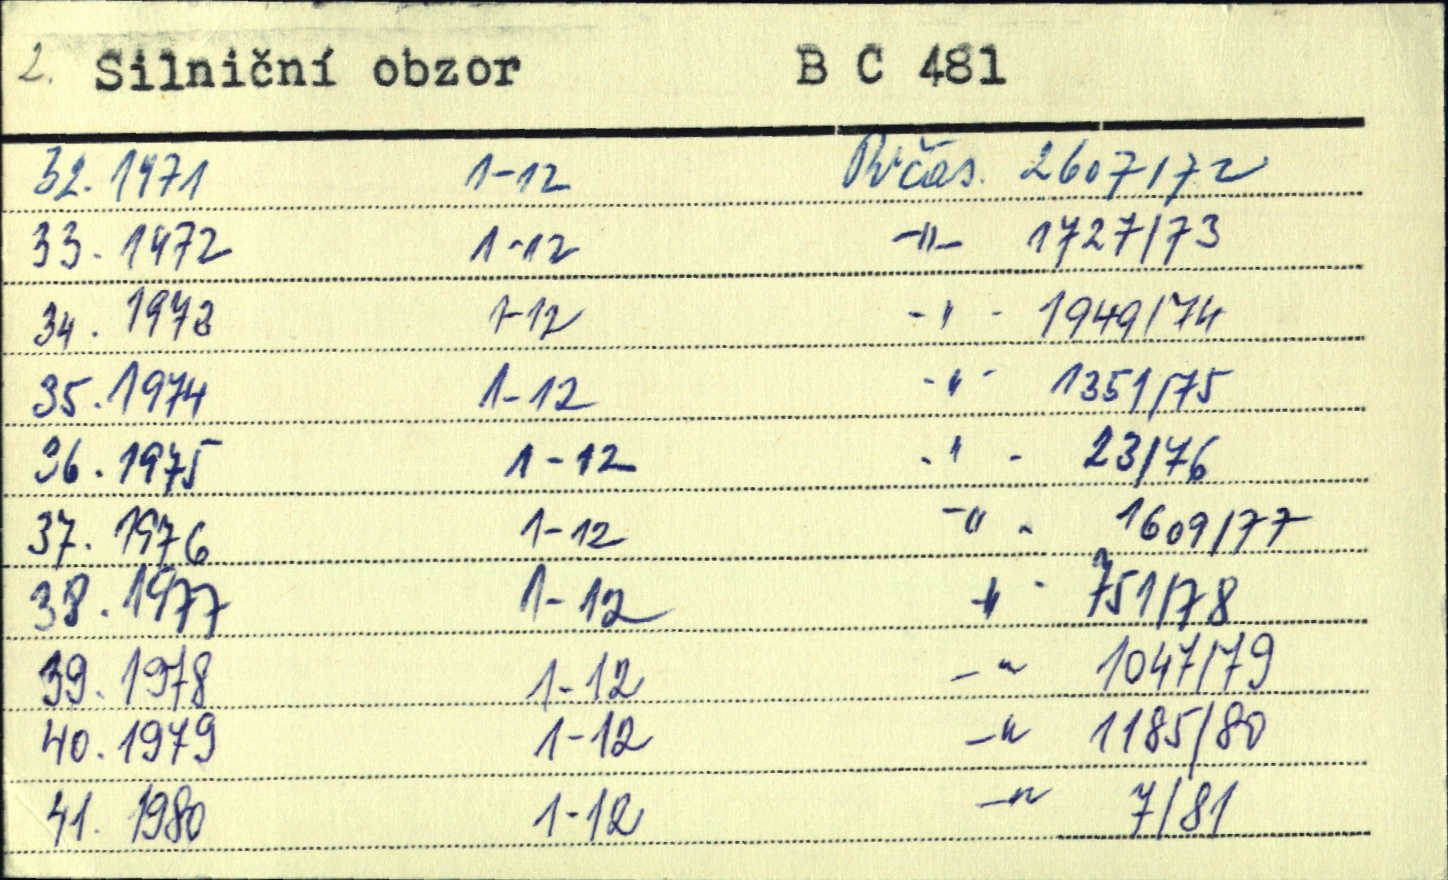 2. Silniční obzor B C 481
32. 1971 1-12 Přčas. 2607/72
33. 1972 1-12 -"- 1727/73
34. 1973 1-12 -"- 1949/74
35. 1974 1-12 -"- 1351/75
36. 1975 1-12 -"- 23/76
37. 1976 1-12 -"- 1609/77
38. 1977 1-12 -"- 751/78
39. 1978 1-12 -"- 1047/79
40. 1979 1-12 -"- 1185/80
41. 1980 1-12 -"- 7/81